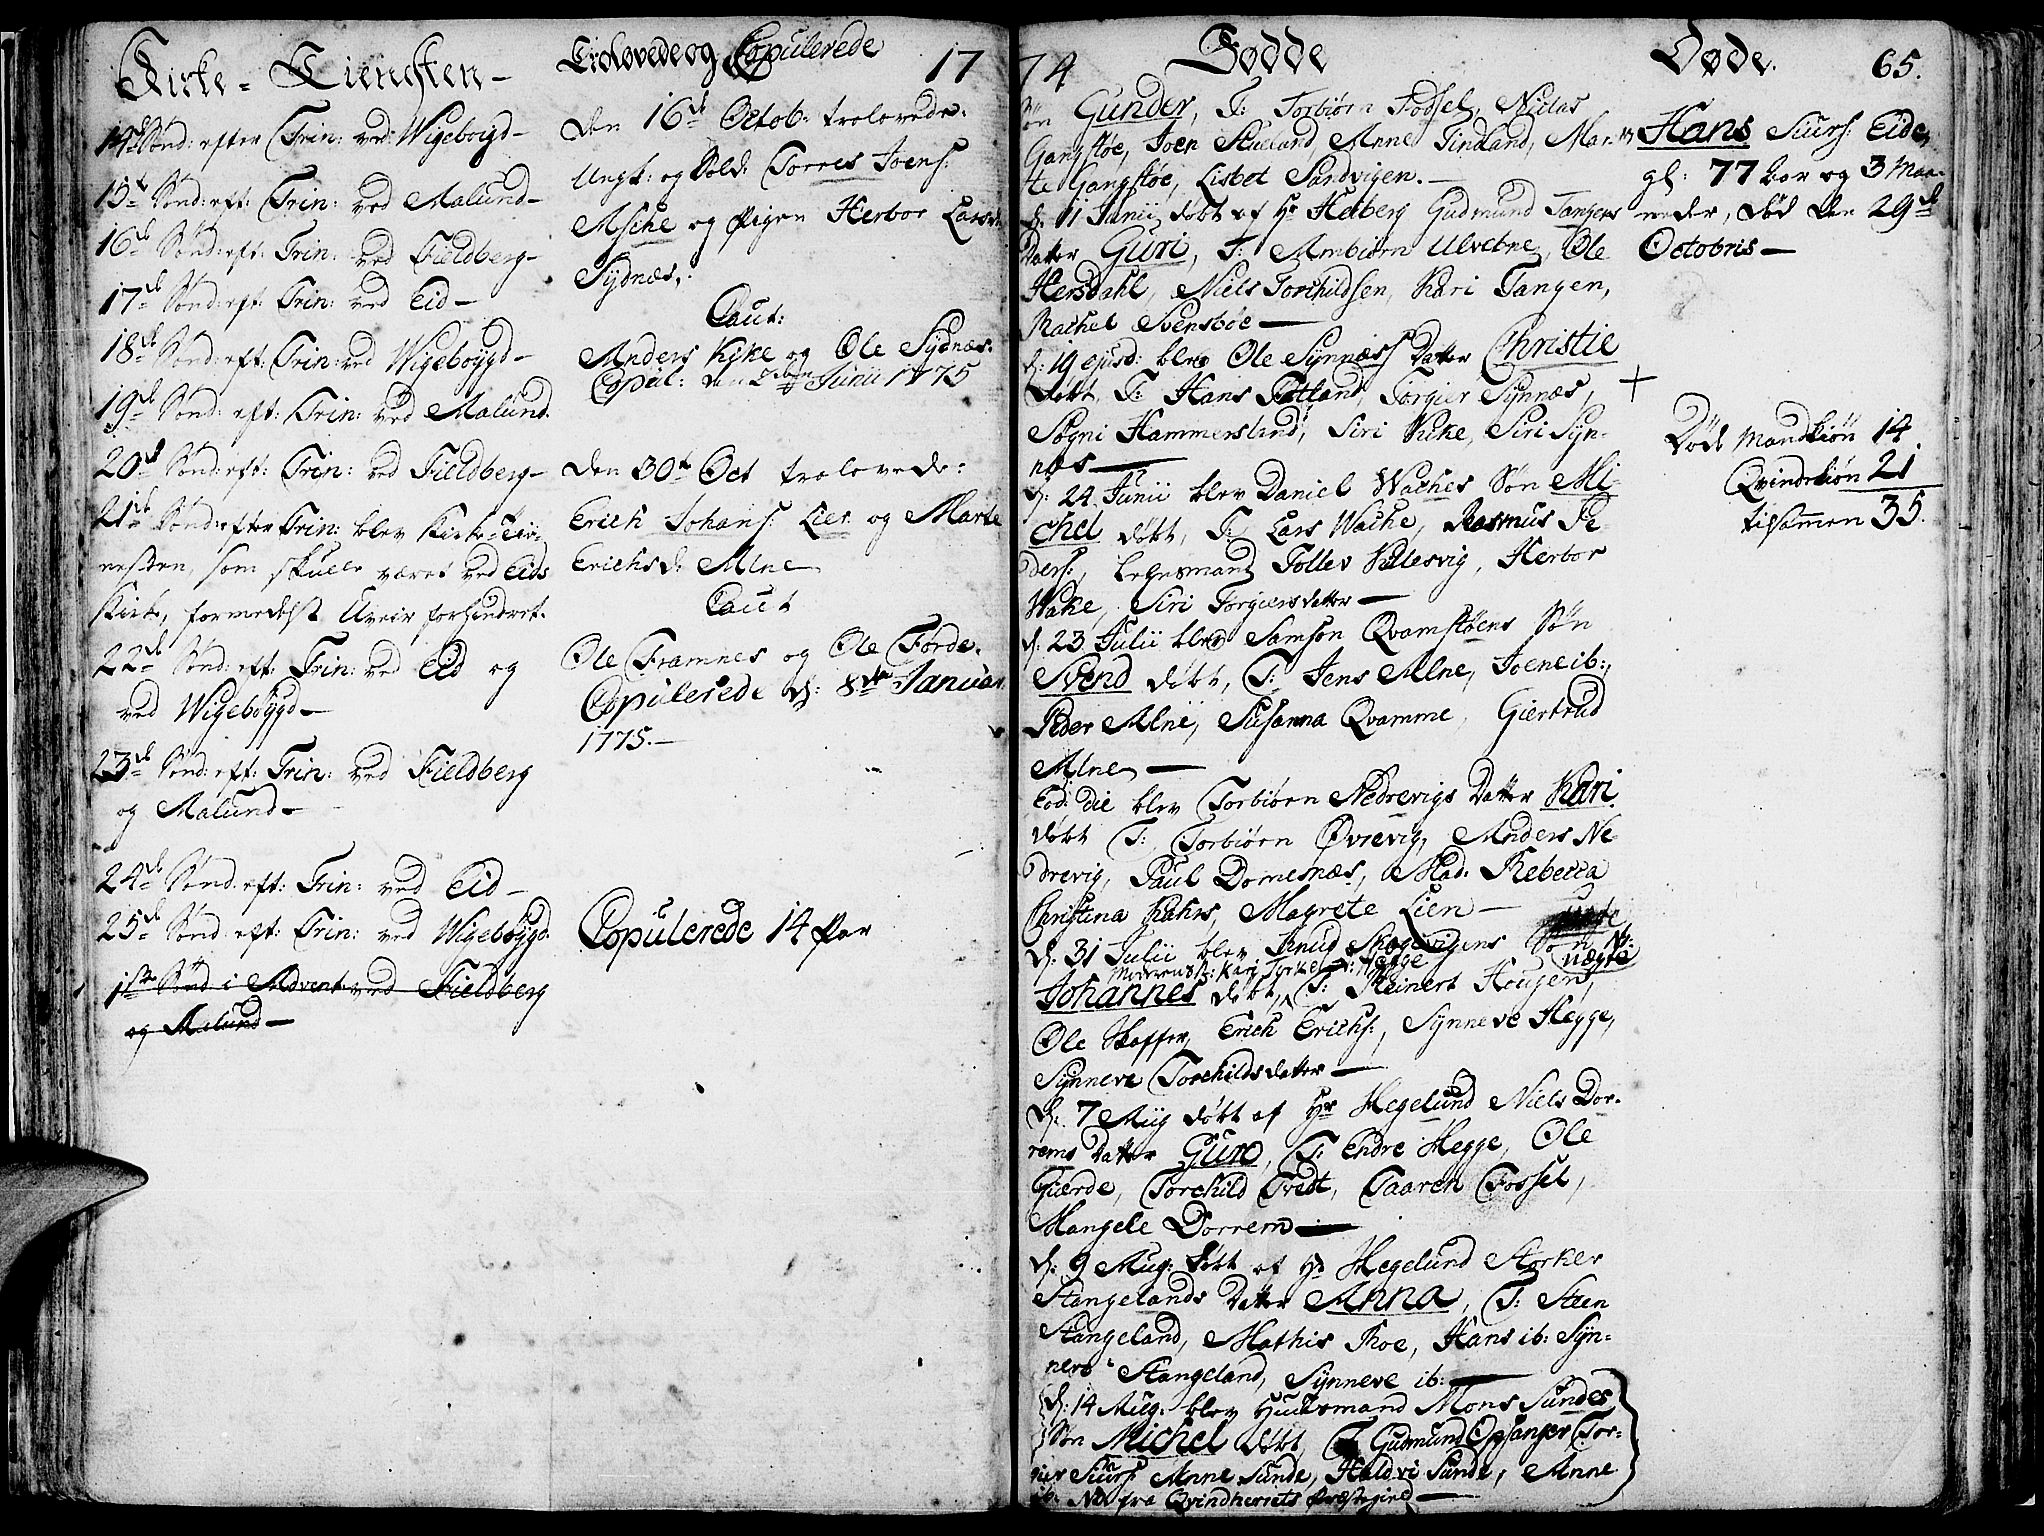 Kirke-Tienesten-
14de Sønd: efter Trin: ved Wigeboigd-
15de Sønd: eft: Trin: ved Malund-
16de Sønd: eft: Trin: ved Fieldberg-
17de Sønd: eft: Trin: ved Eid-
18de Sønd: eft: Trin: ved Wigeboygd-
19de Sønd: eft: Trin: ved Malund.
20de Sønd: eft: Trin: ved Fieldberg-
21de Sønd: efter Trin: blev Kirke-Tie-
nesten, som skulle været ved Eids
Kirke, formedelst Uveir forhindret.
22de Sønd: eft: Trin: ved Eid og
ved Wigebøygd-
23de Sønd: eft: Trin: ved Fieldberg
og Malund-
24de Sønd: eft: Trin: ved Eid-
25de Sønd: eft: Trin: ved Wigebøygd.
1ste Sønd i Advent ved Fieldberg
og Malund-
Trolovede og Copulerede 17
Den 16de Octob: trolovede:
Ungk: og Sold: Torres Joens:
Msche og Pigen Herbor Larsd:
Sydnæs,:
Caut:
Anders Kike og Ole Sydnæs.
Copul: den Junii 1775
Den 30te Oct trolovede:
Erich Johans: Lier og Marte
Erichsd: Alne
Caut
Ole Framnes og Ole Førde.
Copulerede d: 8de Januar
1775.-
Copulerede 14 Par
74 Fødde
Søn Gunder, T: Torbiørn Fodsel, Niclas
Gangstøe, Joen Stueland, Anne Tindland, Mar-
te Gangstøe, Lisbet Sandvigen.-
d: 11 Junii døbt af Hr Heiberg Gudmund Tangens
Datter Guri, T: Ambiørn Ulvebne, Ole
Hersdahl, Niels Torchildsen, Kari Tangen,
Rachel Svensbøe-
d: 19 ejusd: blev Ole Synnæss Datter Christie
døbt, T: Hans Fatland, Torgier Synnæs,
Søgni Hammersland, Siri Kike, Siri Syn-
næs-
d: 24 Junii blev Daniel Waches Søn Mi-
chel døbt, T: Lars Wache, Rasmus Pe-
ders:, Lehnsmand Tollev Kallesvig, Herbor
Wake, Siri Torgiersdatter-
d: 23 Julii blev Samson Qvamstøens Søn
Svend døbt, T: Jens Alne, Joen ib:,
Peder Alne, Susanna Qvamme, Giertrud
Alne-
Eod: die blev Torbiørn Nedrevigs Datter Kari
døbt T: Torbiørn Øvrevig, Anders Ne-
drevig, Paul Domesnæs, Mad: Rebecca
Christina Kahrs, Magrete Lien-
d: 31 Julii blev Knud Skogevigens Søn
Johannes døbt, T: Reinert Hougen, uægte
Ole Skaffer, Erich Erichs:, Synneve Hegge,
Synneve Torchildsdatter-
d: 7 Aug døbt af Hr Hegelund Niels Dor-
rems Datter Guro, T: Endre Hegge, Ole
Gierde, Torchild Tvedt, Taaren Fossel,
Mangele Dorrem-
d: 9 Aug: døbt af Hr Hegelund Størker
Stangelands Datter Anna, T: Steen
Stangeland, Mathis Roe, Hans ib: Syn-
neve Stangeland, Synneve ib:-
d: 14 Aug: blev Huusmand Mons Sundes
Søn Michel døbt, T: Gudmund Opsanger, Tor-
gier Siurs: Anne Sunde, Haldvi Sunde, Anne
ib: NB fra Qvindherrets Præstegield-
Døde. 65.
Hans Siurs: Eide,
gl: 77 aar og 3 Maa-
neder, død den 29de
Octobris-
+
Døde Mandkiøn 14.
Qvindekiøn 21
tilsammen 35.